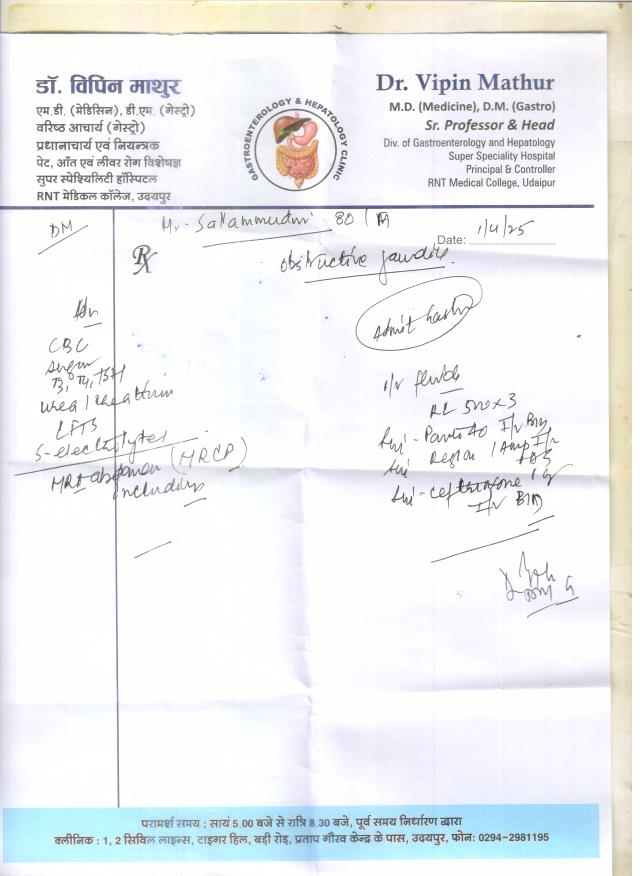 डॉ. विपिन माथुर
एम.डी. (मेडिसिन), डी.एम. (गेस्ट्रो)
वरिष्ठ आचार्य (गेस्ट्रो)
प्रधानाचार्य एवं नियन्त्रक
पेट, आँत एवं लीवर रोग विशेषज्ञ
सुपर स्पेश्यिलिटी हॉस्पिटल
RNT मेडिकल कॉलेज, उदयपुर
GASTROENTEROLOGY & HEPATOLOGY CLINIC
Dr. Vipin Mathur
M.D. (Medicine), D.M. (Gastro)
Sr. Professor & Head
Div. of Gastroenterology and Hepatology
Super Speciality Hospital
Principal & Controller
RNT Medical College, Udaipur
DM
Mr. 80/M
Date: 1/4/25
Rx
Obstructive Jaundice
Adv
CBC
Sugar
T3, T4, TSH
Urea/Creatinin
LFTS
S-electrolytes
MRI-abdomen (MRCP)
including
Admit Gastro
I/V fluids
RL 500 x 3
Inj - Panto 40 I/V BD
Inj Reglan 1 Amp I/V
TDS
Inj - Ceftriaxone 1 g
I/V BD
परामर्श समय : सायं 5.00 बजे से रात्रि 8.30 बजे, पूर्व समय निर्धारण द्वारा
क्लीनिक : 1, 2 सिविल लाइन्स, टाइगर हिल, बड़ी रोड़, प्रताप गौरव केन्द्र के पास, उदयपुर, फोन: 0294-2981195